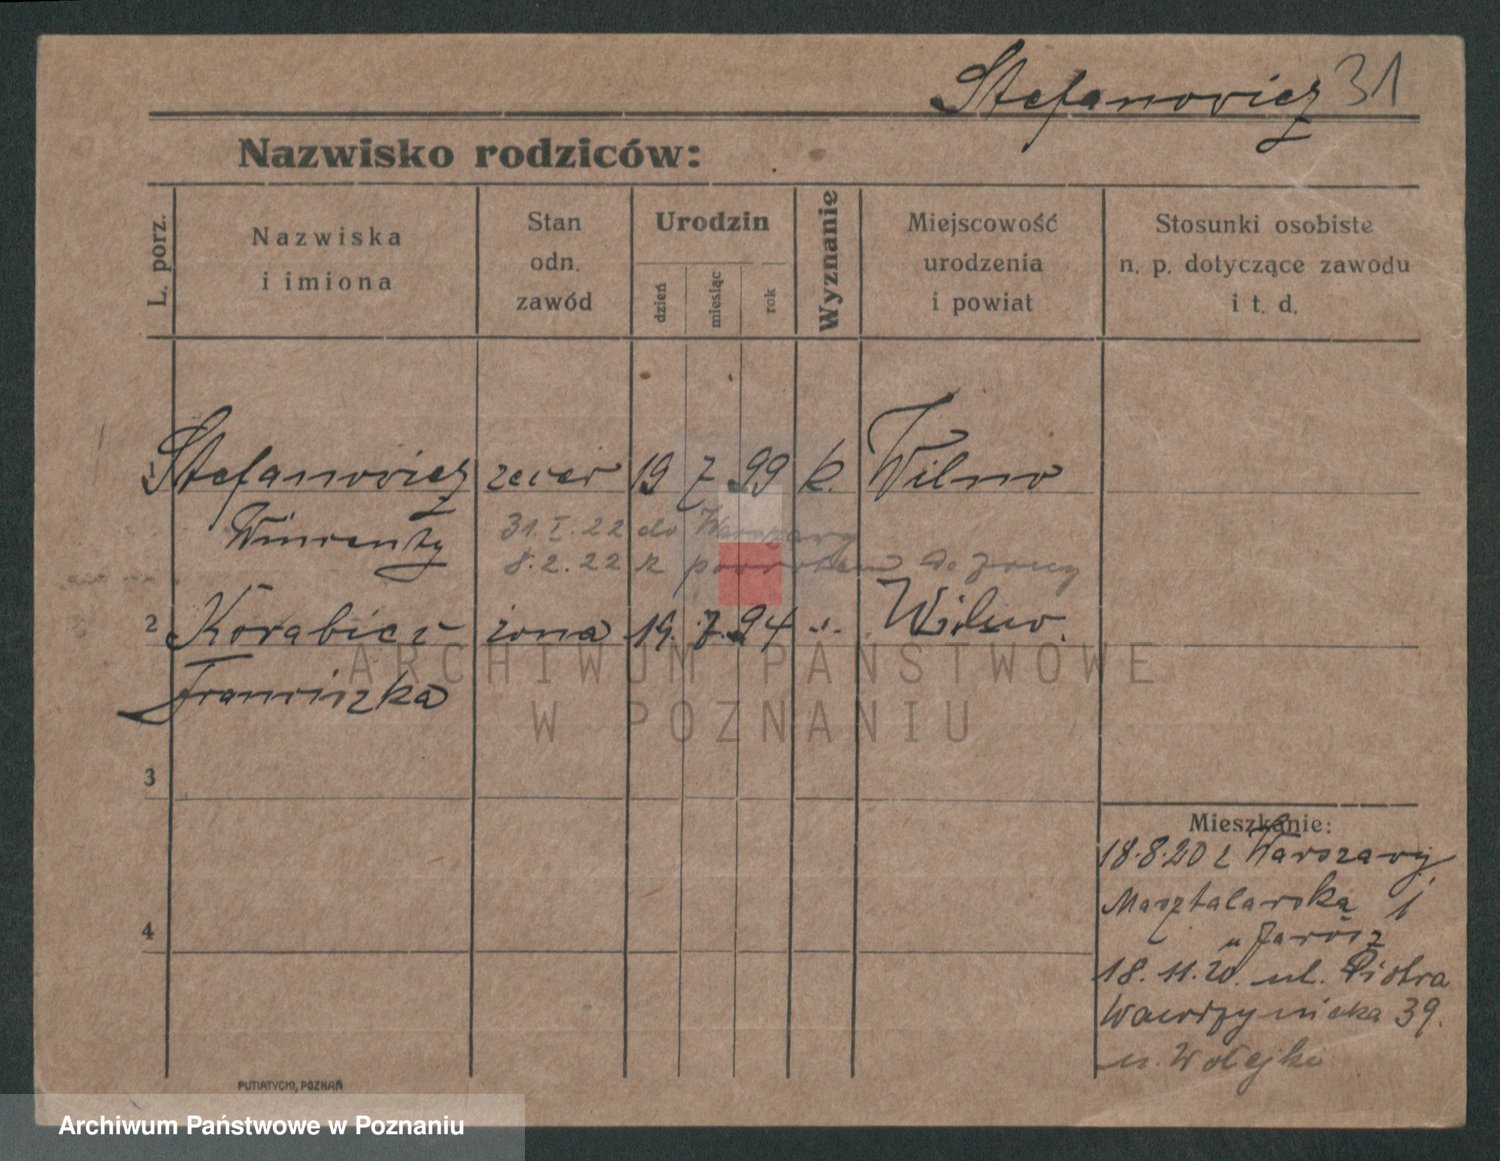 Stefanowicz 31
Nazwisko rodziców:
L. porz.
Nazwiska
i imiona
Stan
odn.
zawód
Urodzin
dzień
miesiąc
rok
Wyznanie
Miejscowość
urodzenia
i powiat
Stosunki osobiste
n. p. dotyczące zawodu
i t. d.
1 Stefanowicz zecer 19 7 99 k. Wilno
Wincenty 31. I. 22 do Warszawy
8. 2. 22 z powrotem do żony
2 Korabicz żona 19. 7. 94 -"- Wilno.
Franciszka
3
4
Mieszkanie:
18.8.20 z Warszawy
Masztalarska 1
u Jarosz
18.11.20. ul. Piotra
Wawrzyniaka 39.
u. Wołejko
PUTIATYCKI, POZNAŃ
ARCHIWUM PAŃSTWOWE
W POZNANIU
Archiwum Państwowe w Poznaniu